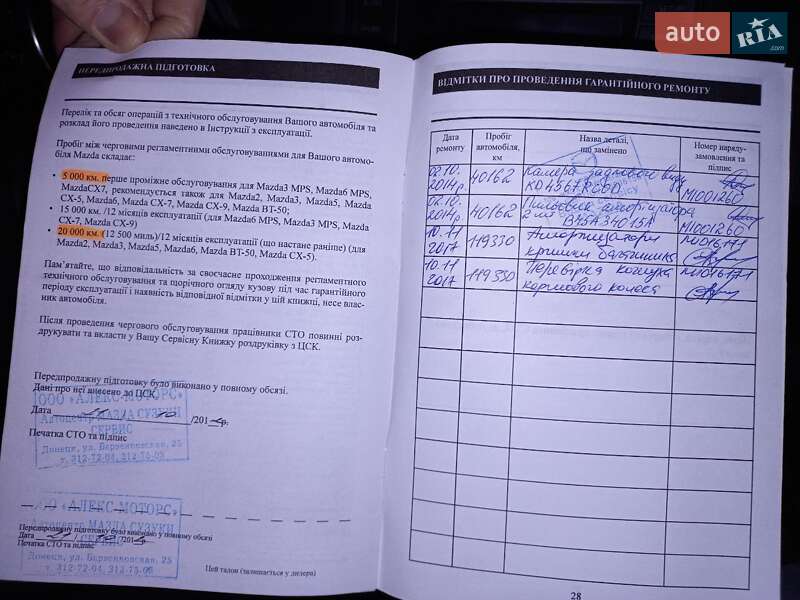 auto RIA .com
ПЕРЕДПРОДАЖНА ПІДГОТОВКА
Перелік та обсяг операцій з технічного обслуговування Вашого автомобіля та
розклад його проведення наведено в Інструкції з експлуатації.
Пробіг між черговими регламентними обслуговуваннями для Вашого автомо-
біля Mazda складає:
• 5 000 км. перше проміжне обслуговування для Mazda3 MPS, Mazda6 MPS,
MazdaCX7, рекомендується також для Mazda2, Mazda3, Mazda5, Mazda
CX-5, Mazda6, Mazda CX-7, Mazda CX-9, Mazda BT-50;
• 15 000 км. /12 місяців експлуатації (для Mazda6 MPS, Mazda3 MPS, Mazda
CX-7, Mazda CX-9)
• 20 000 км. (12 500 миль)/12 місяців експлуатації (що настане раніше) (для
Mazda2, Mazda3, Mazda5, Mazda6, Mazda BT-50, Mazda CX-5).
Пам'ятайте, що відповідальність за своєчасне проходження регламентного
технічного обслуговування та щорічного огляду кузову під час гарантійного
періоду експлуатації і наявність відповідної відмітки у цій книжці, несе влас-
ник автомобіля.
Після проведення чергового обслуговування працівники СТО повинні роз-
друкувати та вкласти у Вашу Сервісну Книжку роздруківку з ЦСК.
Передпродажну підготовку було виконано у повному обсязі.
Дані про неї внесено до ЦСК
ООО «АЛЕКС-МОТОРС»
Дата /201 р.
Автоцентр МАЗДА СУЗУКИ
СЕРВИС
Печатка СТО та підпис
Донецк, ул. Барзенковская, 25
т. 312-72-04, 312-75-03
ООО «АЛЕКС-МОТОРС»
Передпродажну підготовку було виконано у повному обсязі
Автоцентр МАЗДА СУЗУКИ
Дата /201
СЕРВИС
Печатка СТО та підпис
Донецк, ул. Барзенковская, 25
т. 312-72-04, 312-75-03
Цей талон (залишається у дилера)
ВІДМІТКИ ПРО ПРОВЕДЕННЯ ГАРАНТІЙНОГО РЕМОНТУ
Дата ремонту
Пробіг автомобіля, км
Назва деталі, що замінено
Номер наряду-замовлення та підпис
02.10. 2014р 40162 Камера заднього виду KD4567RC0D M1001260
02.10. 2014р 40162 2 шт M1001260
10.11 2017 119330 Амортизатори кришки багажника
10.11 2017 119330 Перевірка кожуха кормового колеса
28